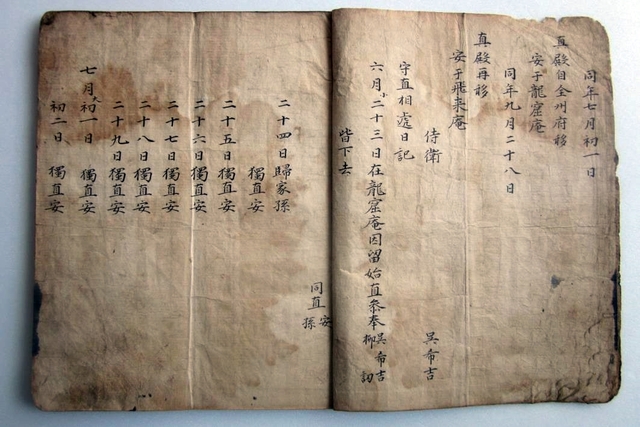 同年七月初一日
真殿自全州府移
安于龍窟庵
同年九月二十八日
真殿再移
安于飛来庵
侍衛 吳希吉
守直相遞日記
六月小二十三日在龍窟庵因留始直叅奉吳希吉柳訒
皆下去
同直安孫
二十四日歸家孫
獨直安
二十五日 獨直安
二十六日 獨直安
二十七日 獨直安
二十八日 獨直安
二十九日 獨直安
七月大初一日 獨直安
初二日 獨直安